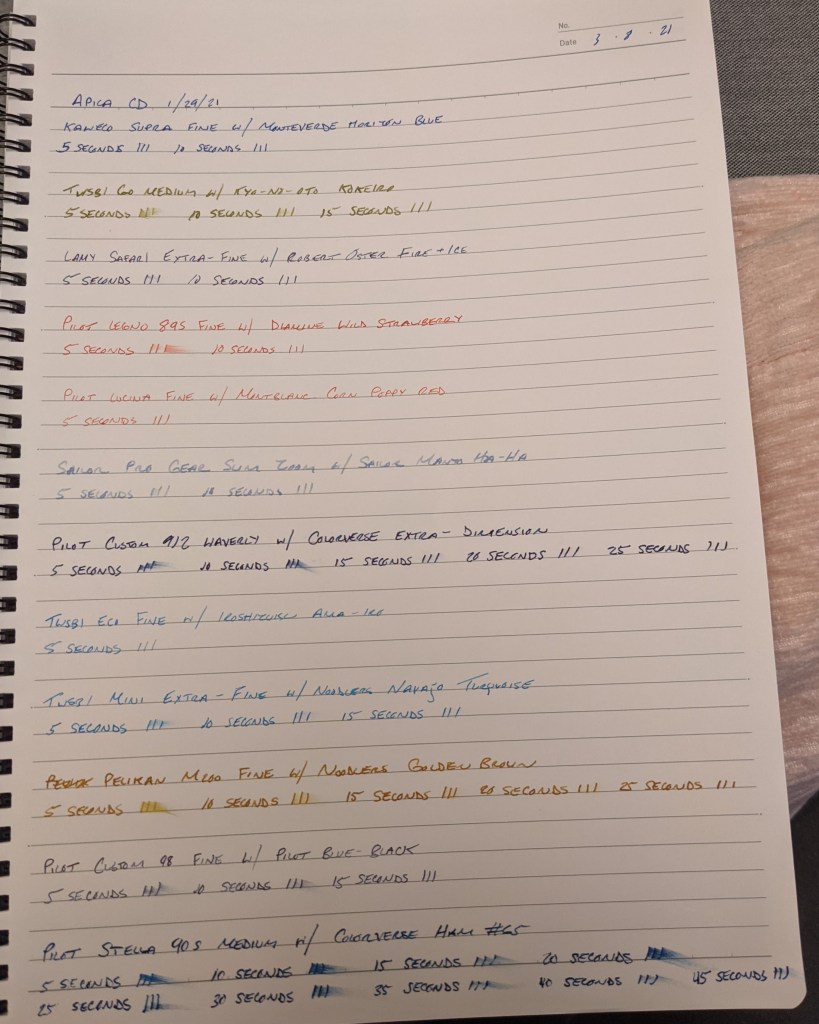 No.
Date 3 · 8 · 21
APICA CD 1/29/21
KAWECO SUPRA FINE W/ MONTEVERDE HORIZON BLUE
5 SECONDS III 10 SECONDS III
TWSBI GO MEDIUM W/ KYO-NO-OTO KOKEIRO
5 SECONDS III 10 SECONDS III 15 SECONDS III
LAMY SAFARI EXTRA-FINE W/ ROBERT OSTER FIRE + ICE
5 SECONDS III 10 SECONDS III
PILOT LEGNO 89S FINE W/ DIAMINE WILD STRAWBERRY
5 SECONDS III 10 SECONDS III
PILOT LUCINA FINE W/ MONTBLANC CORN POPPY RED
5 SECONDS III
SAILOR PRO GEAR SLIM ZOOM W/ SAILOR MANYO HA-HA
5 SECONDS III 10 SECONDS III
PILOT CUSTOM 912 WAVERLY W/ COLORVERSE EXTRA-DIMENSION
5 SECONDS III 10 SECONDS III 15 SECONDS III 20 SECONDS III 25 SECONDS III
TWSBI ECO FINE W/ IROSHIZUKU AMA-IRO
5 SECONDS III
TWSBI MINI EXTRA-FINE W/ NOODLERS NAVAJO TURQUOISE
5 SECONDS III 10 SECONDS III 15 SECONDS III
PELIKAN M200 FINE W/ NOODLERS GOLDEN BROWN
5 SECONDS III 10 SECONDS III 15 SECONDS III 20 SECONDS III 25 SECONDS III
PILOT CUSTOM 98 FINE W/ PILOT BLUE-BLACK
5 SECONDS III 10 SECONDS III 15 SECONDS III
PILOT STELLA 90S MEDIUM W/ COLORVERSE HAM #65
5 SECONDS III 10 SECONDS III 15 SECONDS III 20 SECONDS III
25 SECONDS III 30 SECONDS III 35 SECONDS III 40 SECONDS III 45 SECONDS III